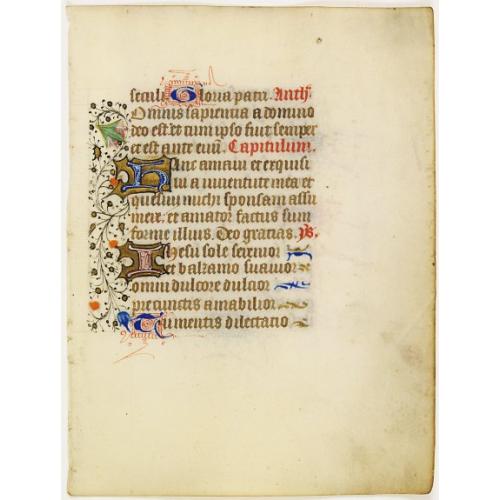 secul. Gloria patri. Anth.
Omnis sapientia a domino
deo est et cum ipso fuit semper
et est ante eum. Capitulum.
Hanc amavi et exquisi
vi a iuventute mea et
quesivi michi sponsam assu
mere. et amator factus sum
forme illius. Deo gracias. ys.
Ihesu sole serenior
et balzamo suavior
omni dulcore dulcior
pre cunctis amabilior
Tu mentis dilectatio